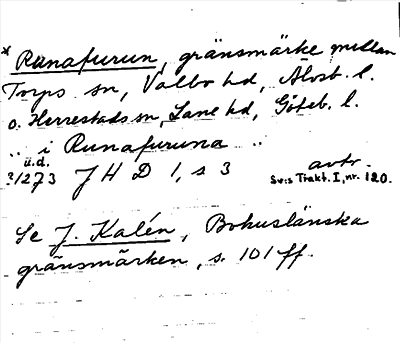 * Runafurun, gränsmärke mellan
Torps sn, Valbo hd, Älvsb. l.
o. Herrestads sn, Lane hd, Göteb. l.
.. i Runafuruna ..
ü.d.
?1273 J H D 1, s 3 avtr.
Sv:s Trakt. I, nr. 120.
Se J. Kalén, Bohuslänska
gränsmärken, s. 101 ff.